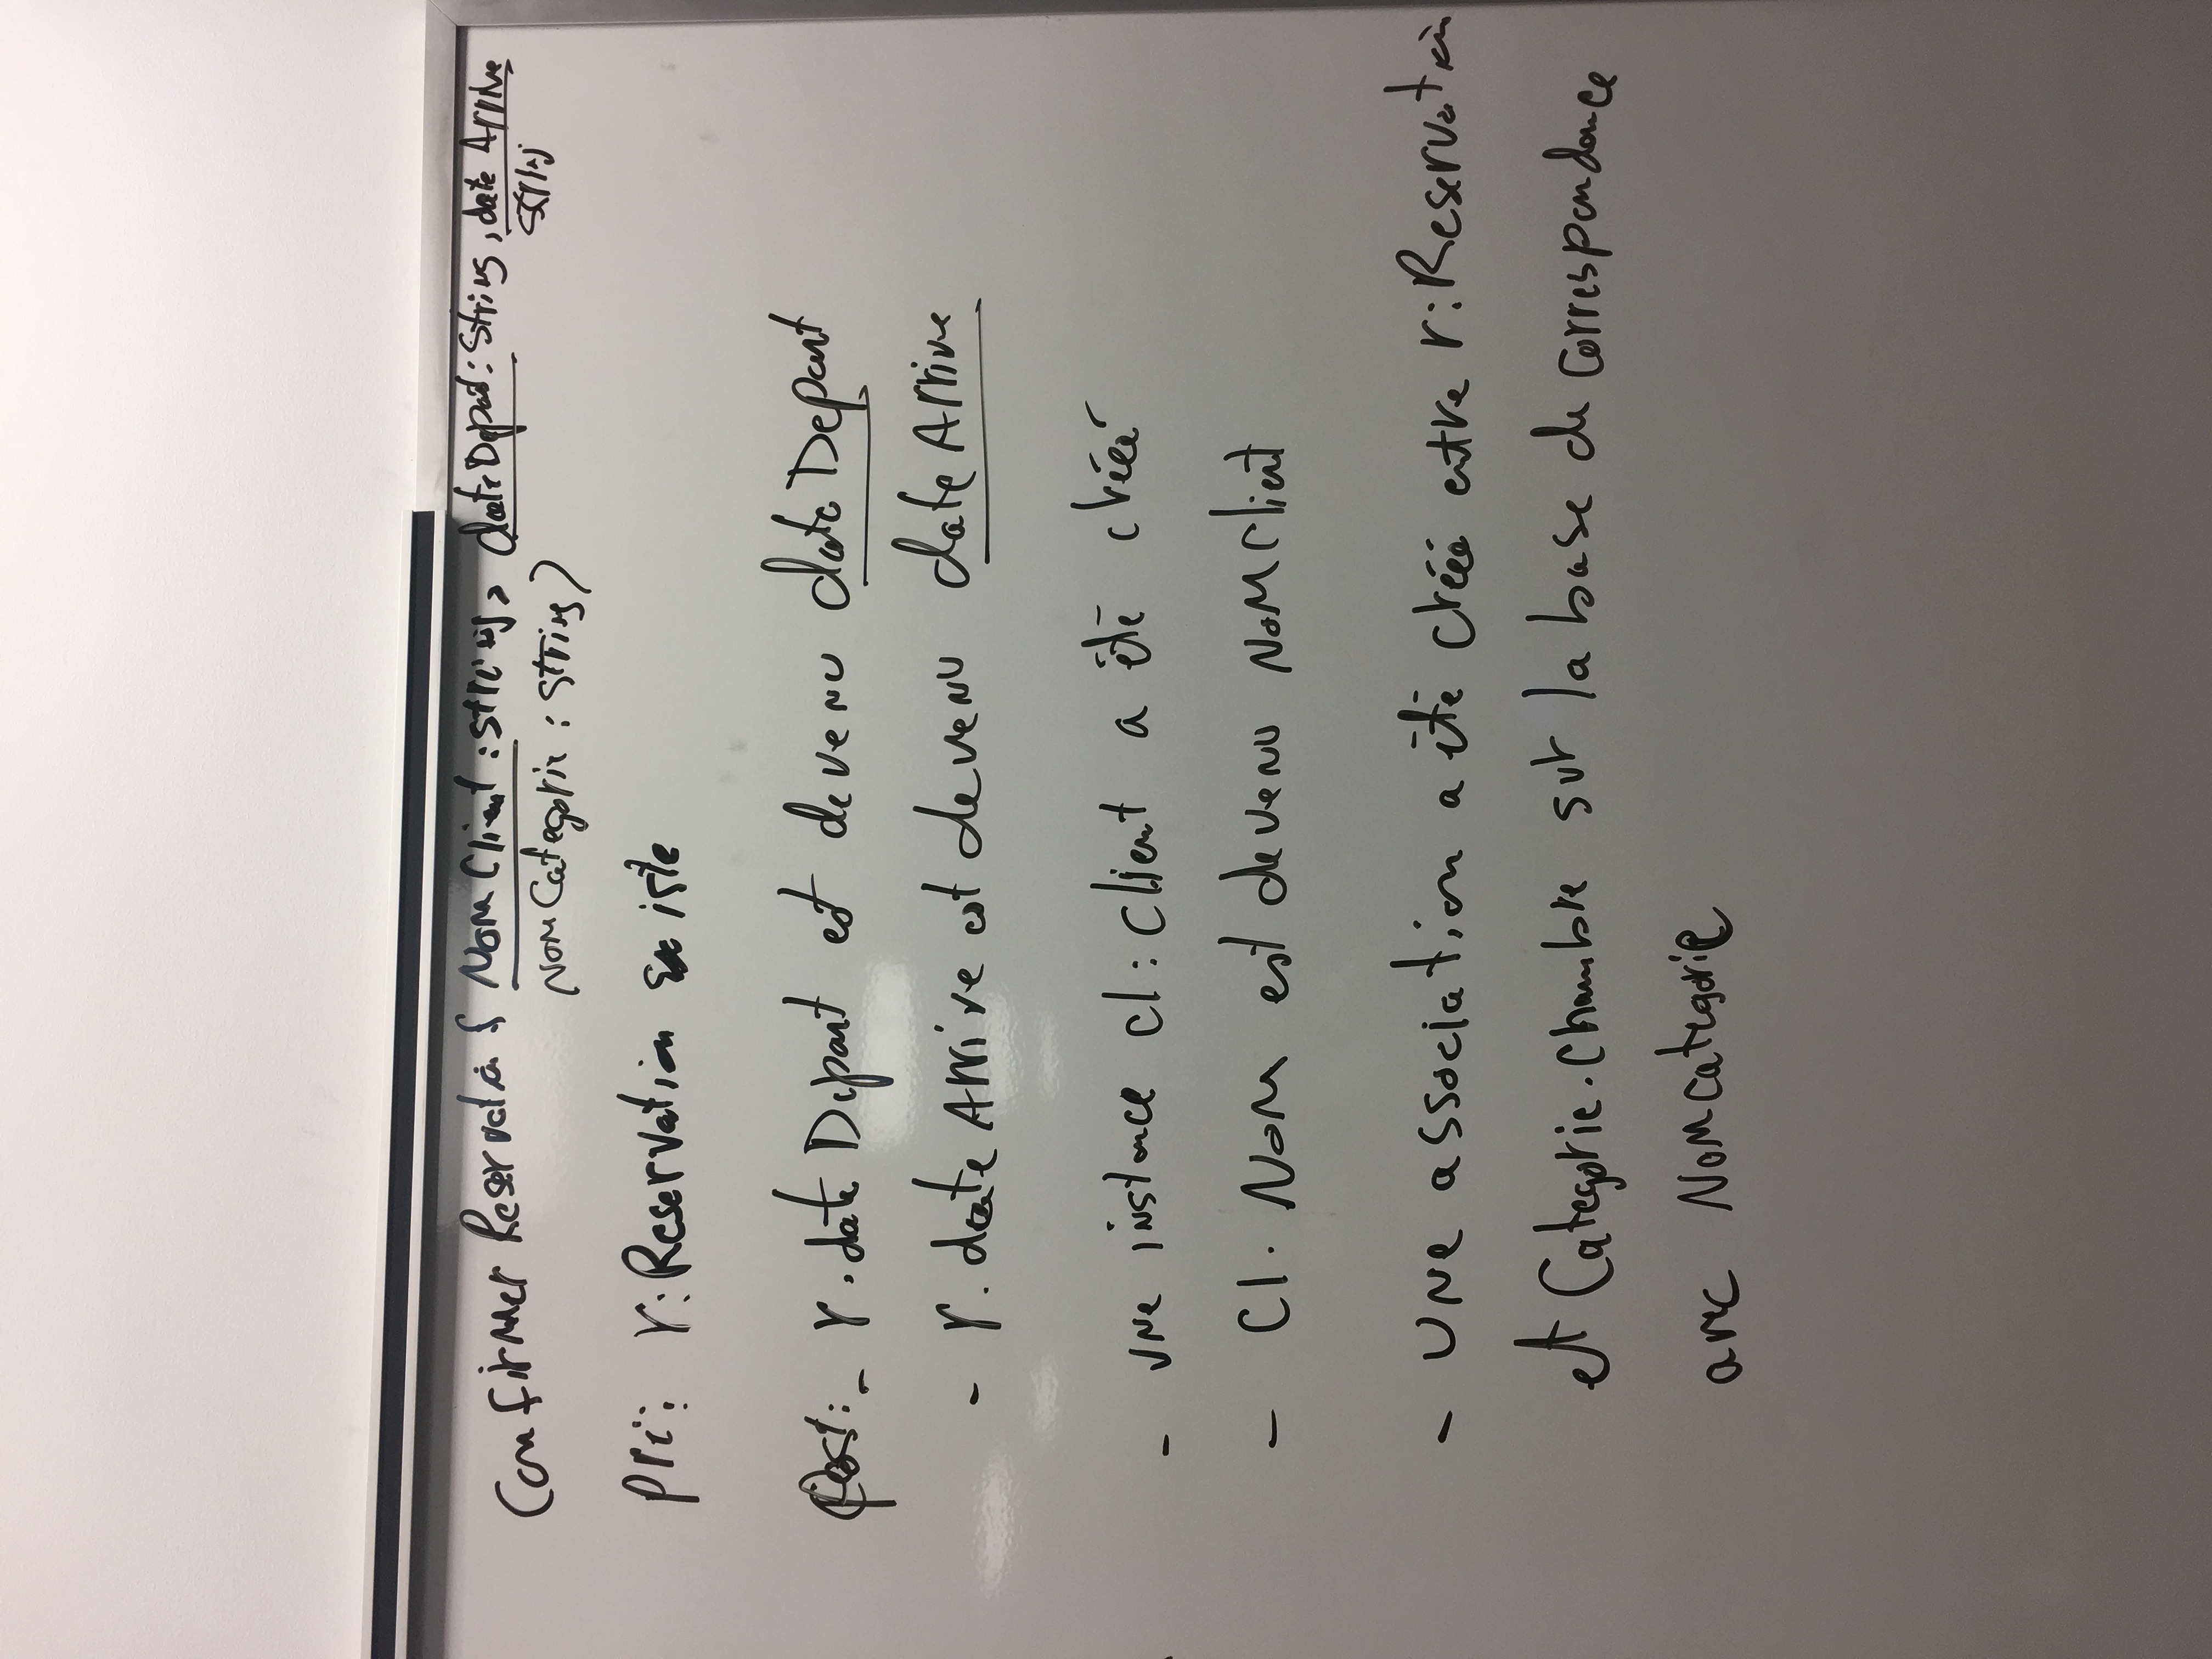 Confirmer Reservation ( Nom Client : string, date Depart : String, date Arrive
string
Nom Categorie : string)
pré: r: Reservation existe
Post: - r. date Depart est devenu date Depart
- r. date Arrive est devenu date Arrive
- une instance cl : client a été créée
- Cl. Nom est devenu Nom Client
- Une association a été créée entre r: Reservation
et Categorie.chambre sur la base de correspondance
avec Nom categorie